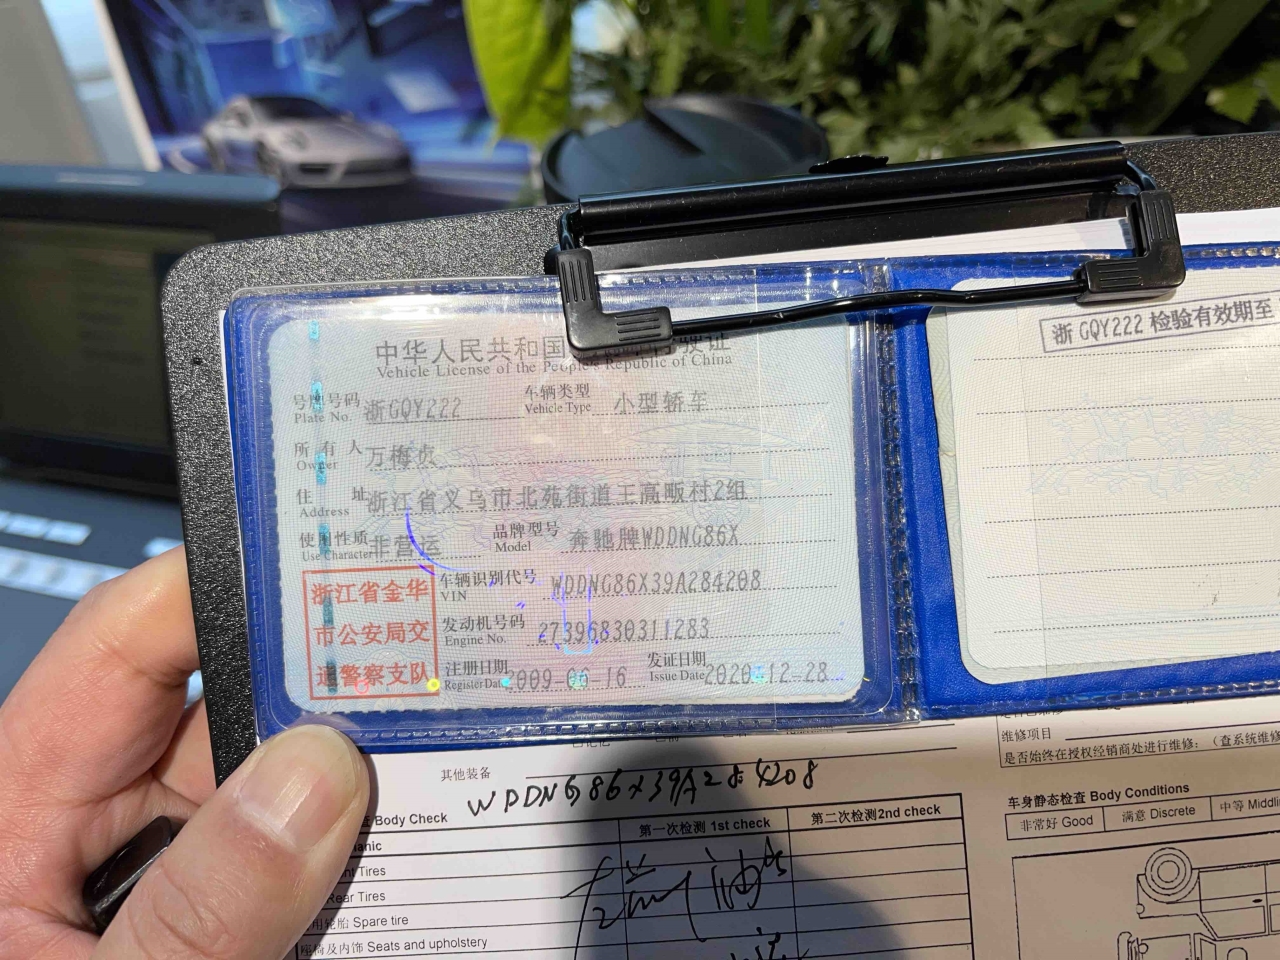 中华人民共和国
Vehicle License of the People's Republic of China
号牌号码 浙GQY222 车辆类型 小型轿车
Plate No. Vehicle Type
所有人 万梅贞
Owner
住址 浙江省义乌市北苑街道王高畈村2组
Address
使用性质 非营运 品牌型号 奔驰牌WDDNG86X
Use Character Model
浙江省金华
市公安局交
通警察支队
车辆识别代号 WDDNG86X39A284208
VIN
发动机号码 27396830311283
Engine No.
注册日期 2009-06-16 发证日期 2020-12-28
Register Date Issue Date
浙GQY222 检验有效期至
维修项目
是否始终在授权经销商处进行维修：（查系统维修
其他装备
WDDNG86X39A284208
查 Body Check 第一次检测 1st check 第二次检测2nd check
anic
nt Tires
Rear Tires
用轮胎 Spare tire
座椅及内饰 Seats and upholstery
车身静态检查 Body Conditions
非常好 Good 满意 Discrete 中等 Middlin